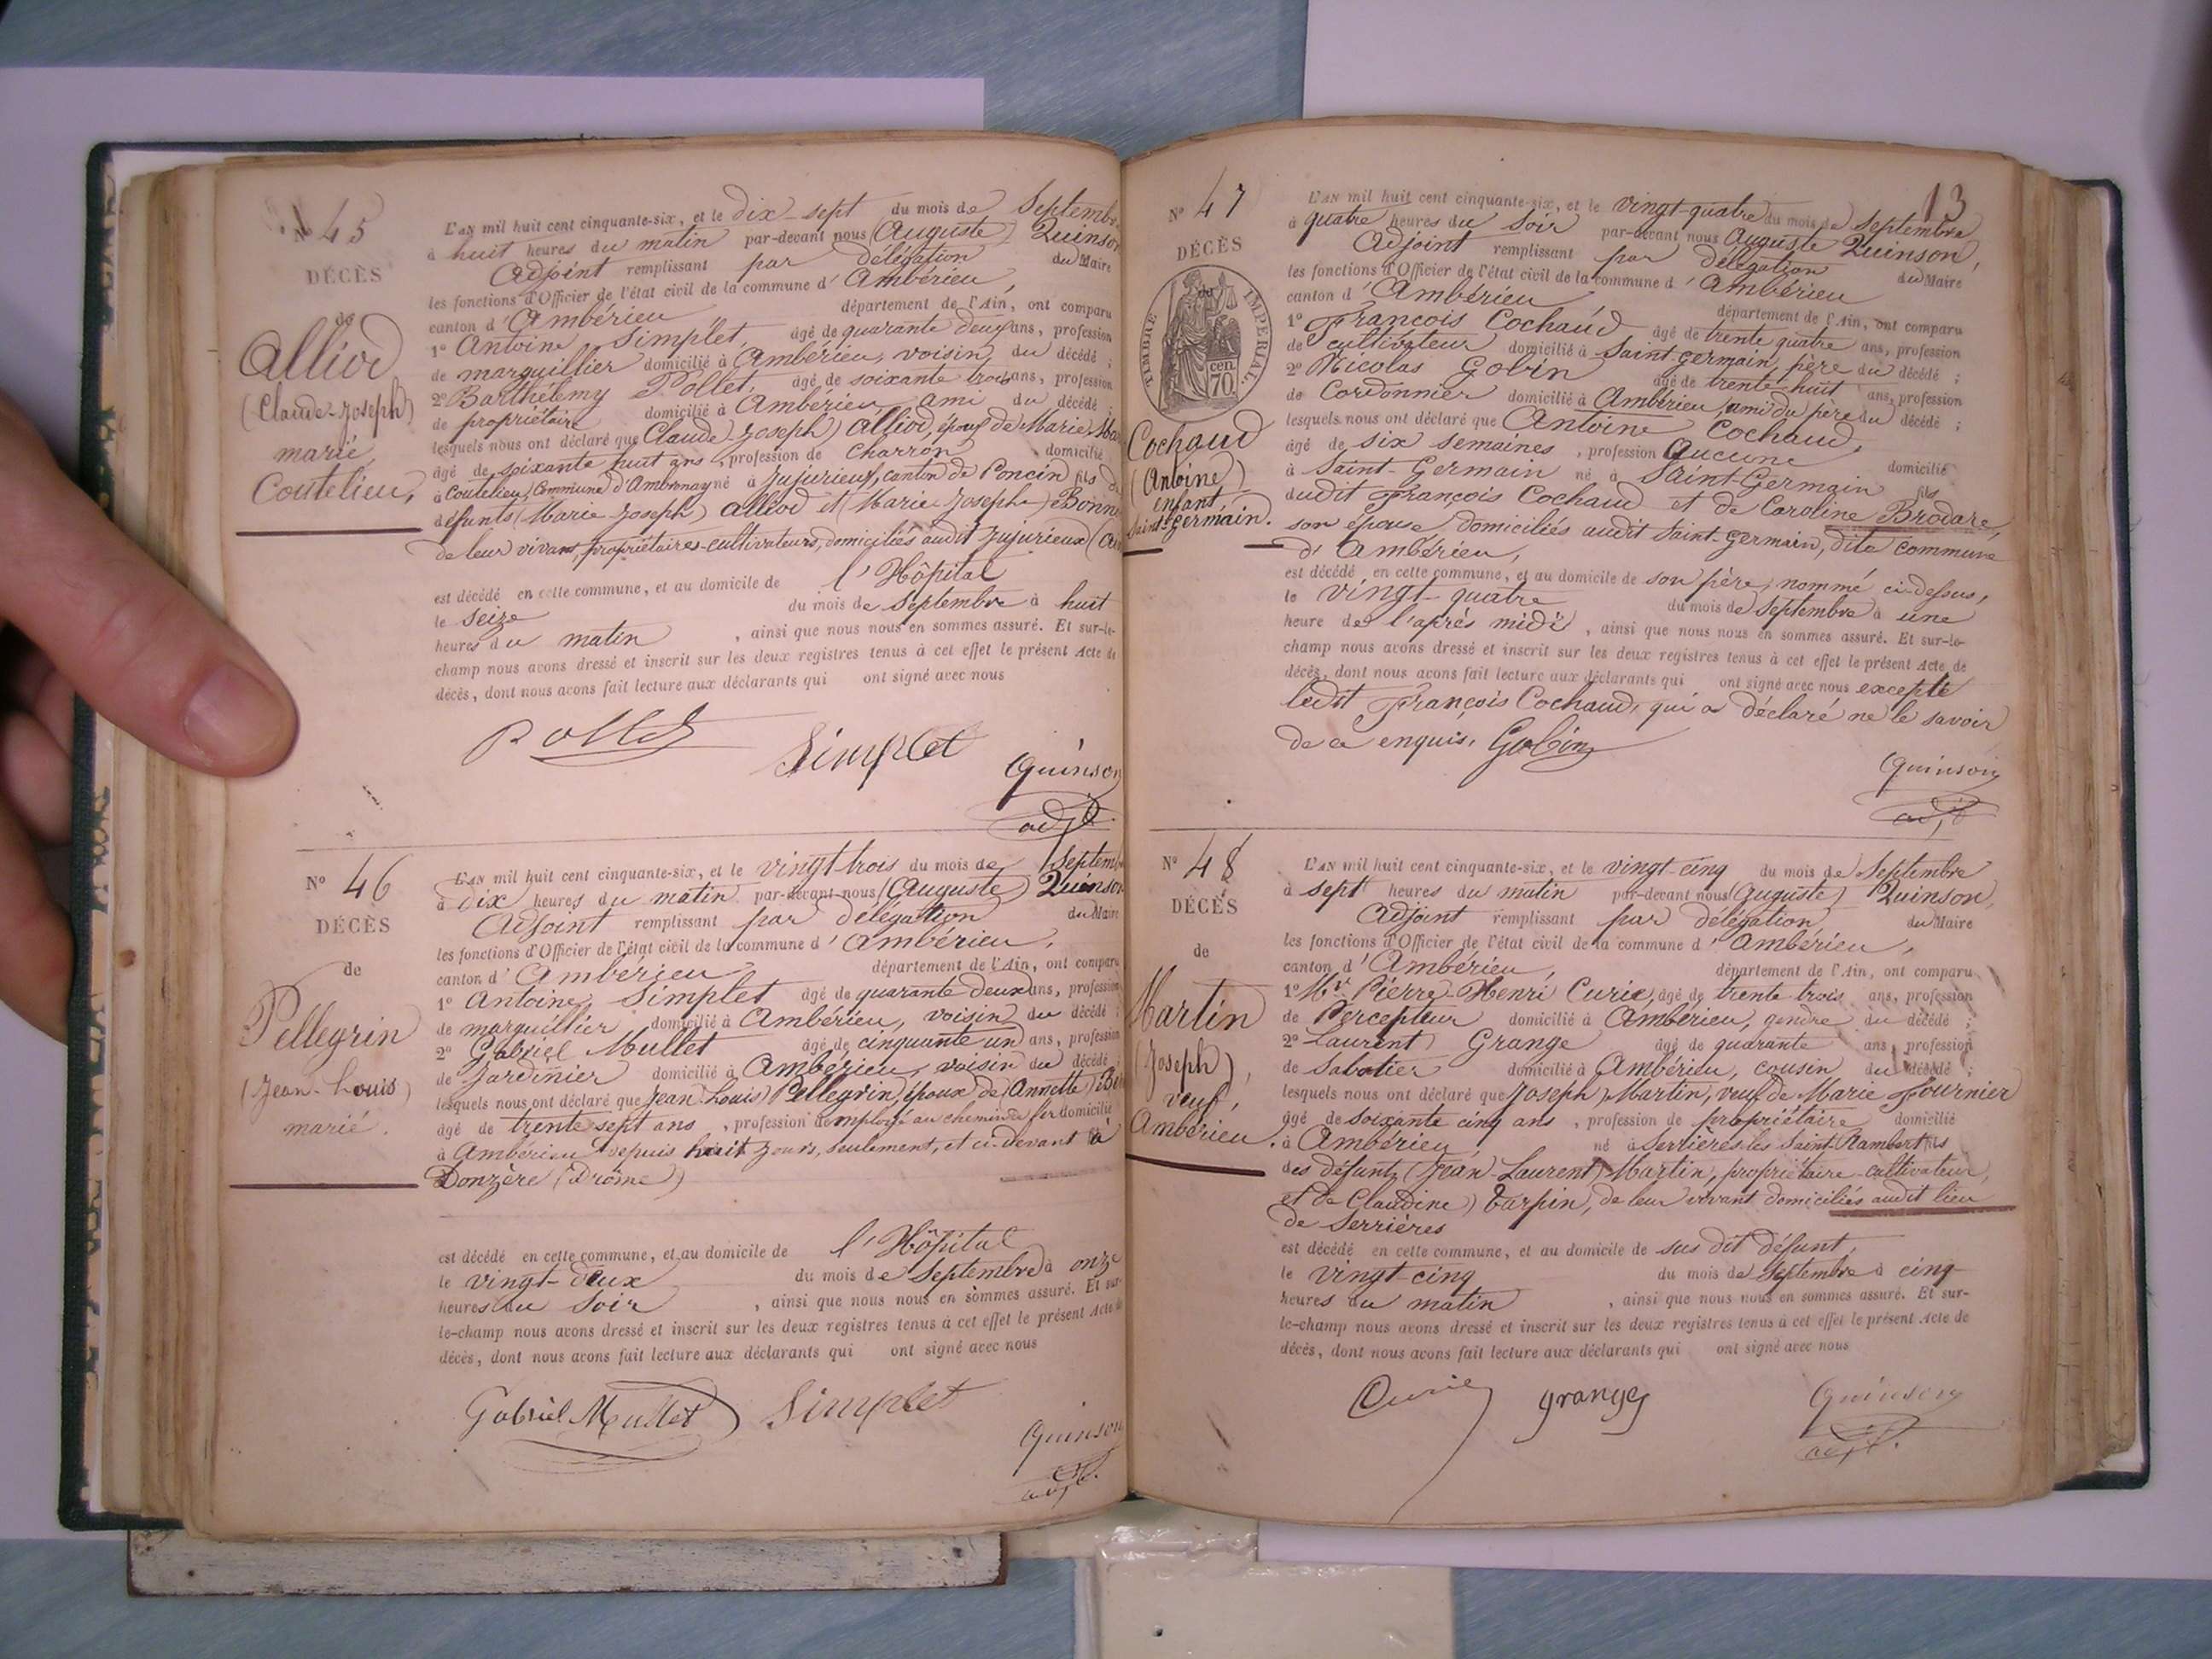 N° 45
DÉCÈS
de
Alliod
(Claude-Joseph)
marié,
Coutelieu,
L'AN mil huit cent cinquante-six, et le dix-sept du mois de Septembre
à huit heures du matin par-devant nous (Auguste) Quinson
Adjoint remplissant par délégation du Maire
les fonctions d'Officier de l'état civil de la commune d'Ambérieu,
canton d'Ambérieu département de l'Ain, ont comparu
1° Antoine Simplet, âgé de quarante deux ans, profession
de marguillier domicilié à Ambérieu, voisin du décédé ;
2° Barthélemy Pollet, âgé de soixante trois ans, profession
de propriétaire domicilié à Ambérieu, ami du décédé ;
lesquels nous ont déclaré que Claude-Joseph) Alliod, époux de Marie
âgé de soixante huit ans, profession de Charron domicilié
à Coutelieu, Commune d'Ambronay né à Jujurieux, canton de Poncin fils de
défunts (Marie-Joseph) Alliod et (Marie-Josephe)
de leur vivant, propriétaires-cultivateurs, domiciliés audit Jujurieux
est décédé en cette commune, et au domicile de l'Hôpital
le seize du mois de Septembre à huit
heures du matin, ainsi que nous nous en sommes assuré. Et sur-le-
champ nous avons dressé et inscrit sur les deux registres tenus à cet effet le présent Acte de
décès, dont nous avons fait lecture aux déclarants qui ont signé avec nous
Pollet Simplet Quinson
adjt.
N° 46
DÉCÈS
de
Pellegrin
(Jean-Louis)
marié.
L'AN mil huit cent cinquante-six, et le vingt trois du mois de Septembre
à dix heures du matin par-devant nous (Auguste) Quinson
Adjoint remplissant par délégation du Maire
les fonctions d'Officier de l'état civil de la commune d'Ambérieu,
canton d'Ambérieu département de l'Ain, ont comparu
1° Antoine Simplet âgé de quarante deux ans, profession
de marguillier domicilié à Ambérieu, voisin du décédé ;
2° Gabriel Mullet âgé de cinquante un ans, profession
de Jardinier domicilié à Ambérieu, voisin du décédé ;
lesquels nous ont déclaré que Jean Louis) Pellegrin, époux de (Annette)
âgé de trente sept ans, profession d'employé au chemin de fer domicilié
à Ambérieu depuis huit jours, seulement, et ci-devant à
Donzère (Drôme)
est décédé en cette commune, et au domicile de l'Hôpital
le vingt-deux du mois de Septembre à onze
heures du soir, ainsi que nous nous en sommes assuré. Et sur-
le-champ nous avons dressé et inscrit sur les deux registres tenus à cet effet le présent Acte de
décès, dont nous avons fait lecture aux déclarants qui ont signé avec nous
Gabriel Mullet Simplet
Quinson
adjt.
13
N° 47
DÉCÈS
de
TIMBRE IMPERIAL.
70 cen.
Cochaud
(Antoine)
enfant,
Saint-Germain.
L'AN mil huit cent cinquante-six, et le vingt-quatre du mois de Septembre
à quatre heures du soir par-devant nous Auguste Quinson,
Adjoint remplissant par délégation du Maire
les fonctions d'Officier de l'état civil de la commune d'Ambérieu
canton d'Ambérieu département de l'Ain, ont comparu
1° François Cochaud âgé de trente quatre ans, profession
de cultivateur domicilié à Saint-Germain, père du décédé ;
2° Nicolas Gobin âgé de trente huit ans, profession
de Cordonnier domicilié à Ambérieu, ami du père du décédé ;
lesquels nous ont déclaré que Antoine Cochaud,
âgé de six semaines, profession Aucune domicilié
à Saint-Germain né à Saint-Germain fils
dudit François Cochaud et de Caroline Brodare,
son épouse, domiciliés audit Saint-Germain, dite commune
d'Ambérieu,
est décédé en cette commune, et au domicile de son père, nommé ci-dessus,
le vingt-quatre du mois de Septembre à une
heure de l'après midi, ainsi que nous nous en sommes assuré. Et sur-le-
champ nous avons dressé et inscrit sur les deux registres tenus à cet effet le présent Acte de
décès, dont nous avons fait lecture aux déclarants qui ont signé avec nous excepté
ledit François Cochaud, qui a déclaré ne le savoir
de ce enquis. Gobin
Quinson
adjt
N° 48
DÉCÈS
de
Martin
(Joseph),
veuf,
Ambérieu.
L'AN mil huit cent cinquante-six, et le vingt-cinq du mois de Septembre
à sept heures du matin par-devant nous (Auguste) Quinson,
Adjoint remplissant par délégation du Maire
les fonctions d'Officier de l'état civil de la commune d'Ambérieu,
canton d'Ambérieu, département de l'Ain, ont comparu
1° Mr. Pierre-Henri Curie, âgé de trente trois ans, profession
de Percepteur domicilié à Ambérieu, gendre du décédé ;
2° Laurent Grange âgé de quarante ans, profession
de Sabotier domicilié à Ambérieu, cousin du décédé ;
lesquels nous ont déclaré que Joseph) Martin, veuf de Marie Fournier
âgé de soixante cinq ans, profession de propriétaire domicilié
à Ambérieu, né à Serrières les Saint-Rambert fils
des défunts (Jean-Laurent) Martin, propriétaire-cultivateur,
et de Claudine) Tarpin, de leur vivant domiciliés audit lieu
de Serrières
est décédé en cette commune, et au domicile de sus dit défunt,
le vingt-cinq du mois de Septembre à cinq
heures du matin, ainsi que nous nous en sommes assuré. Et sur-
le-champ nous avons dressé et inscrit sur les deux registres tenus à cet effet le présent Acte de
décès, dont nous avons fait lecture aux déclarants qui ont signé avec nous
Curie grange Quinson
adjt.